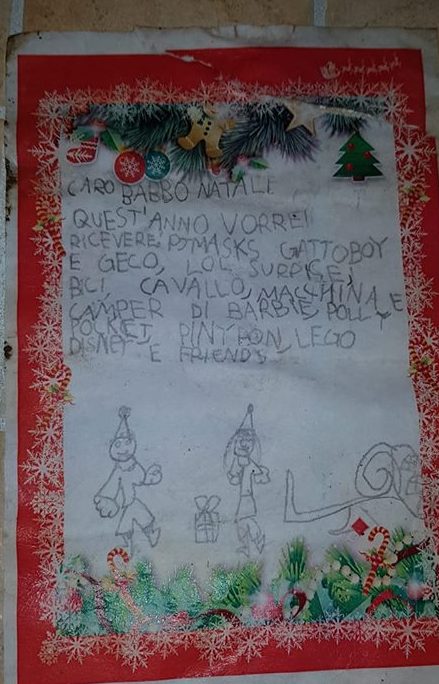 CARO BABBO NATALE
QUEST'ANNO VORREI
RICEVERE PJMASKS GATTOBOY
E GECO, LOL SURPISE,
BICI, CAVALLO, MACCHINA E
CAMPER DI BARBIE, POLLY
POCKET, PINYPON, LEGO
DISNEY E FRIENDS